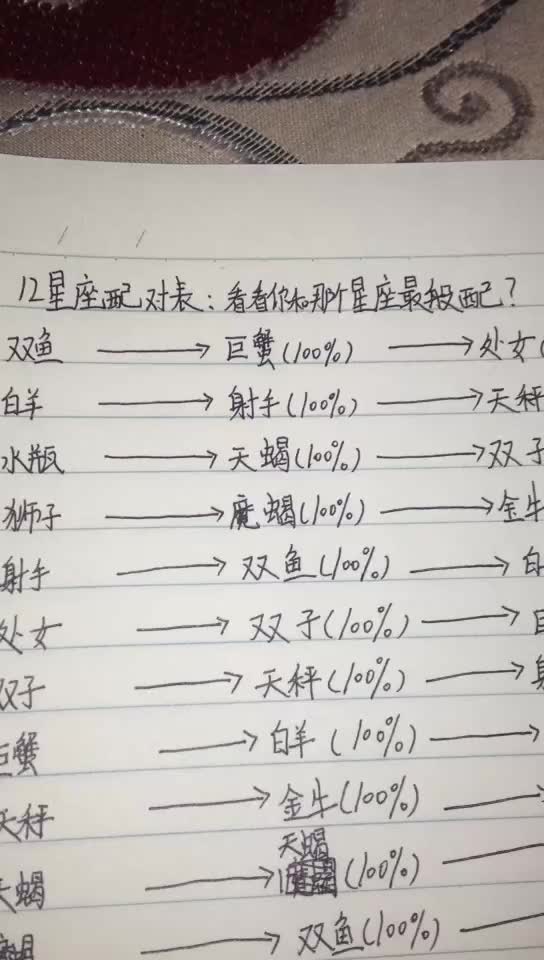 12星座配对表:看看你和那个星座最般配?
双鱼 → 巨蟹(100%) → 处女(
白羊 → 射手(100%) → 天秤
水瓶 → 天蝎(100%) → 双子
狮子 → 魔蝎(100%) → 金牛
射手 → 双鱼(100%) → 白
处女 → 双子(100%) →
双子 → 天秤(100%) →
巨蟹 → 白羊(100%) →
天秤 → 金牛(100%) →
天蝎 → 天蝎(100%)
→ 双鱼(100%)